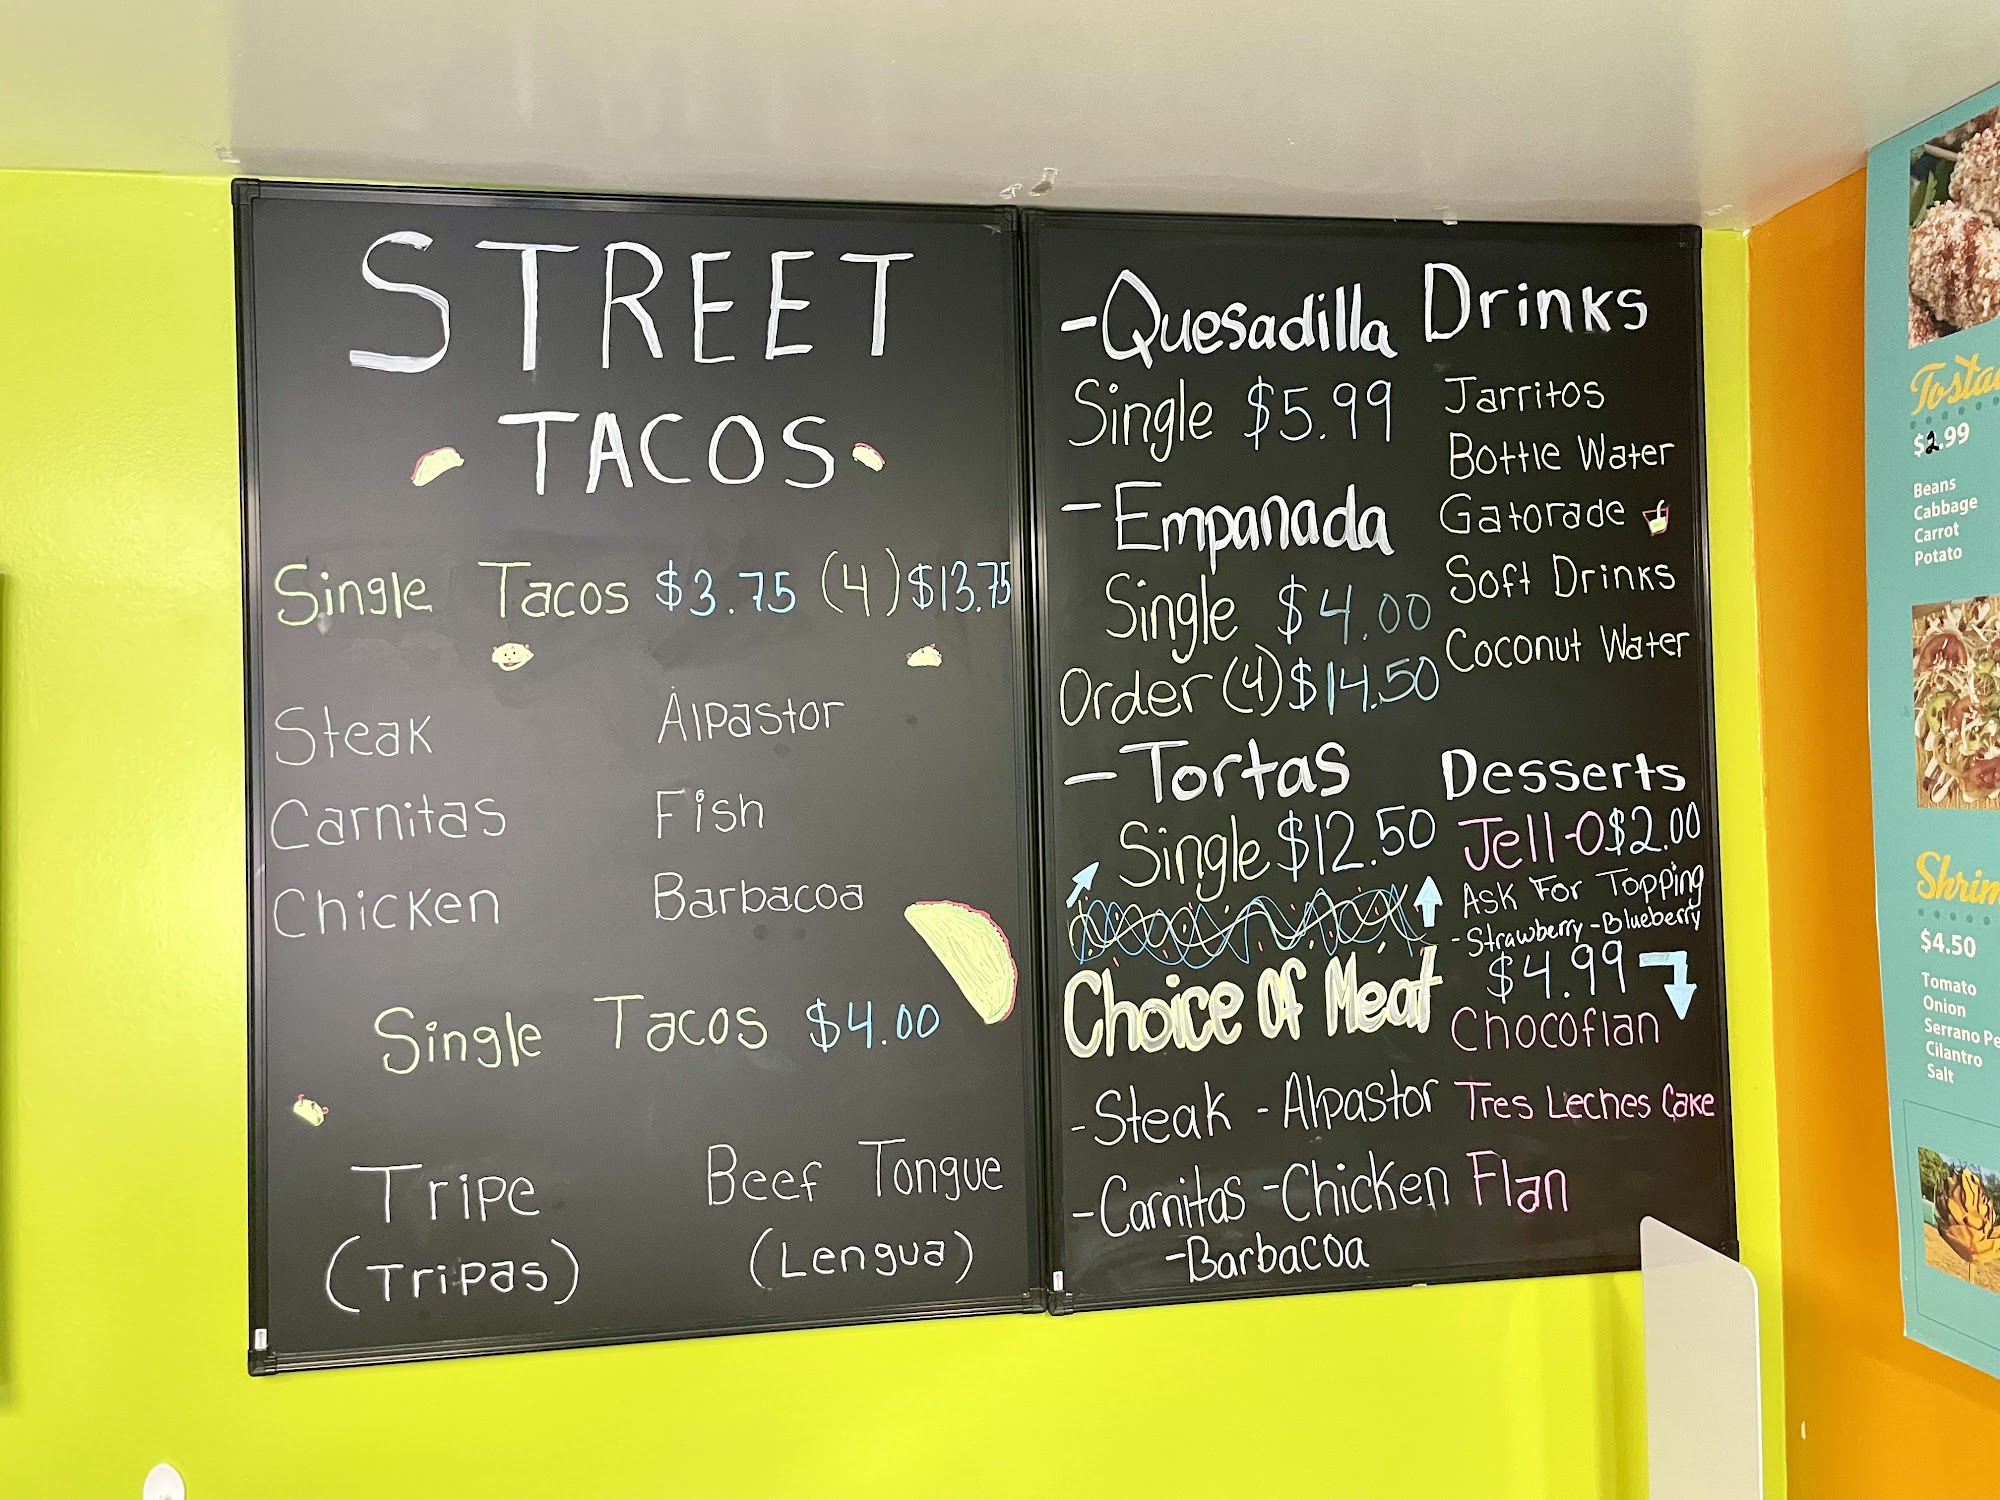 STREET
TACOS
Single Tacos $3.75 (4) $13.75
Steak Alpastor
Carnitas Fish
Chicken Barbacoa
Single Tacos $4.00
Tripe Beef Tongue
(Tripas) (Lengua)
-Quesadilla
Single $5.99
-Empanada
Single $4.00
Order (4) $14.50
-Tortas
Single $12.50
Choice Of Meat
-Steak -Alpastor
-Carnitas -Chicken
-Barbacoa
Drinks
Jarritos
Bottle Water
Gatorade
Soft Drinks
Coconut Water
Desserts
Jell-O $2.00
Ask For Topping
-Strawberry -Blueberry
$4.99
Chocoflan
Tres Leches Cake
Flan
$2.99
Beans
Cabbage
Carrot
Potato
$4.50
Tomato
Onion
Serrano
Cilantro
Salt